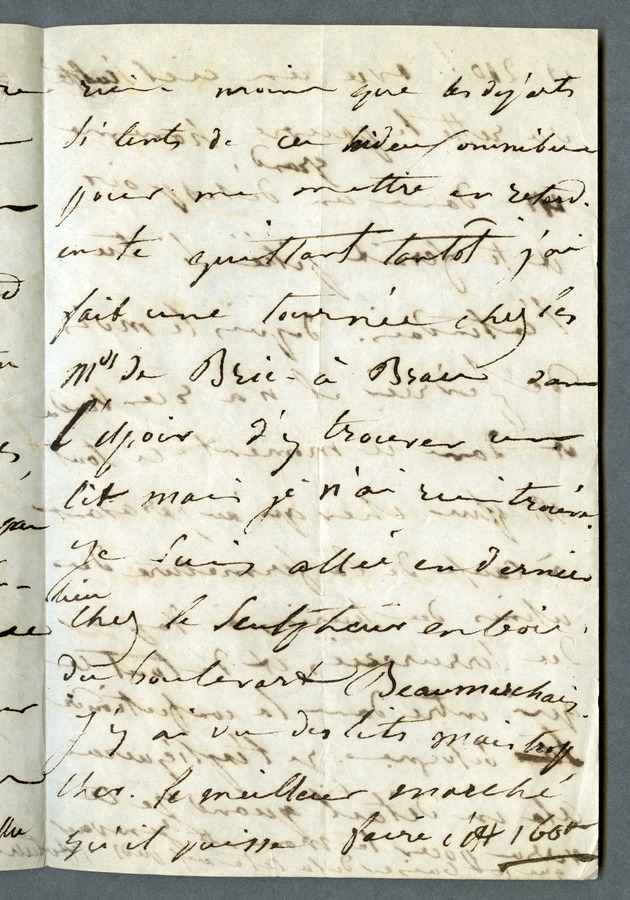 rien moins que les départs
si lents de ces hideux omnibus
pour me mettre en retard.
en te quittant tantôt j'ai
fait une tournée chez les
Mds de Bric-à Brac dans
l'espoir d'y trouver un
lit mais je n'ai rien trouvé.
Je suis allée en dernier
lieu
chez le Sculpteur en bois
du boulevart Beaumarchais.
J'y ai vu des lits mais trop
cher. le meilleur marché
qu'il puisse faire c'est 160